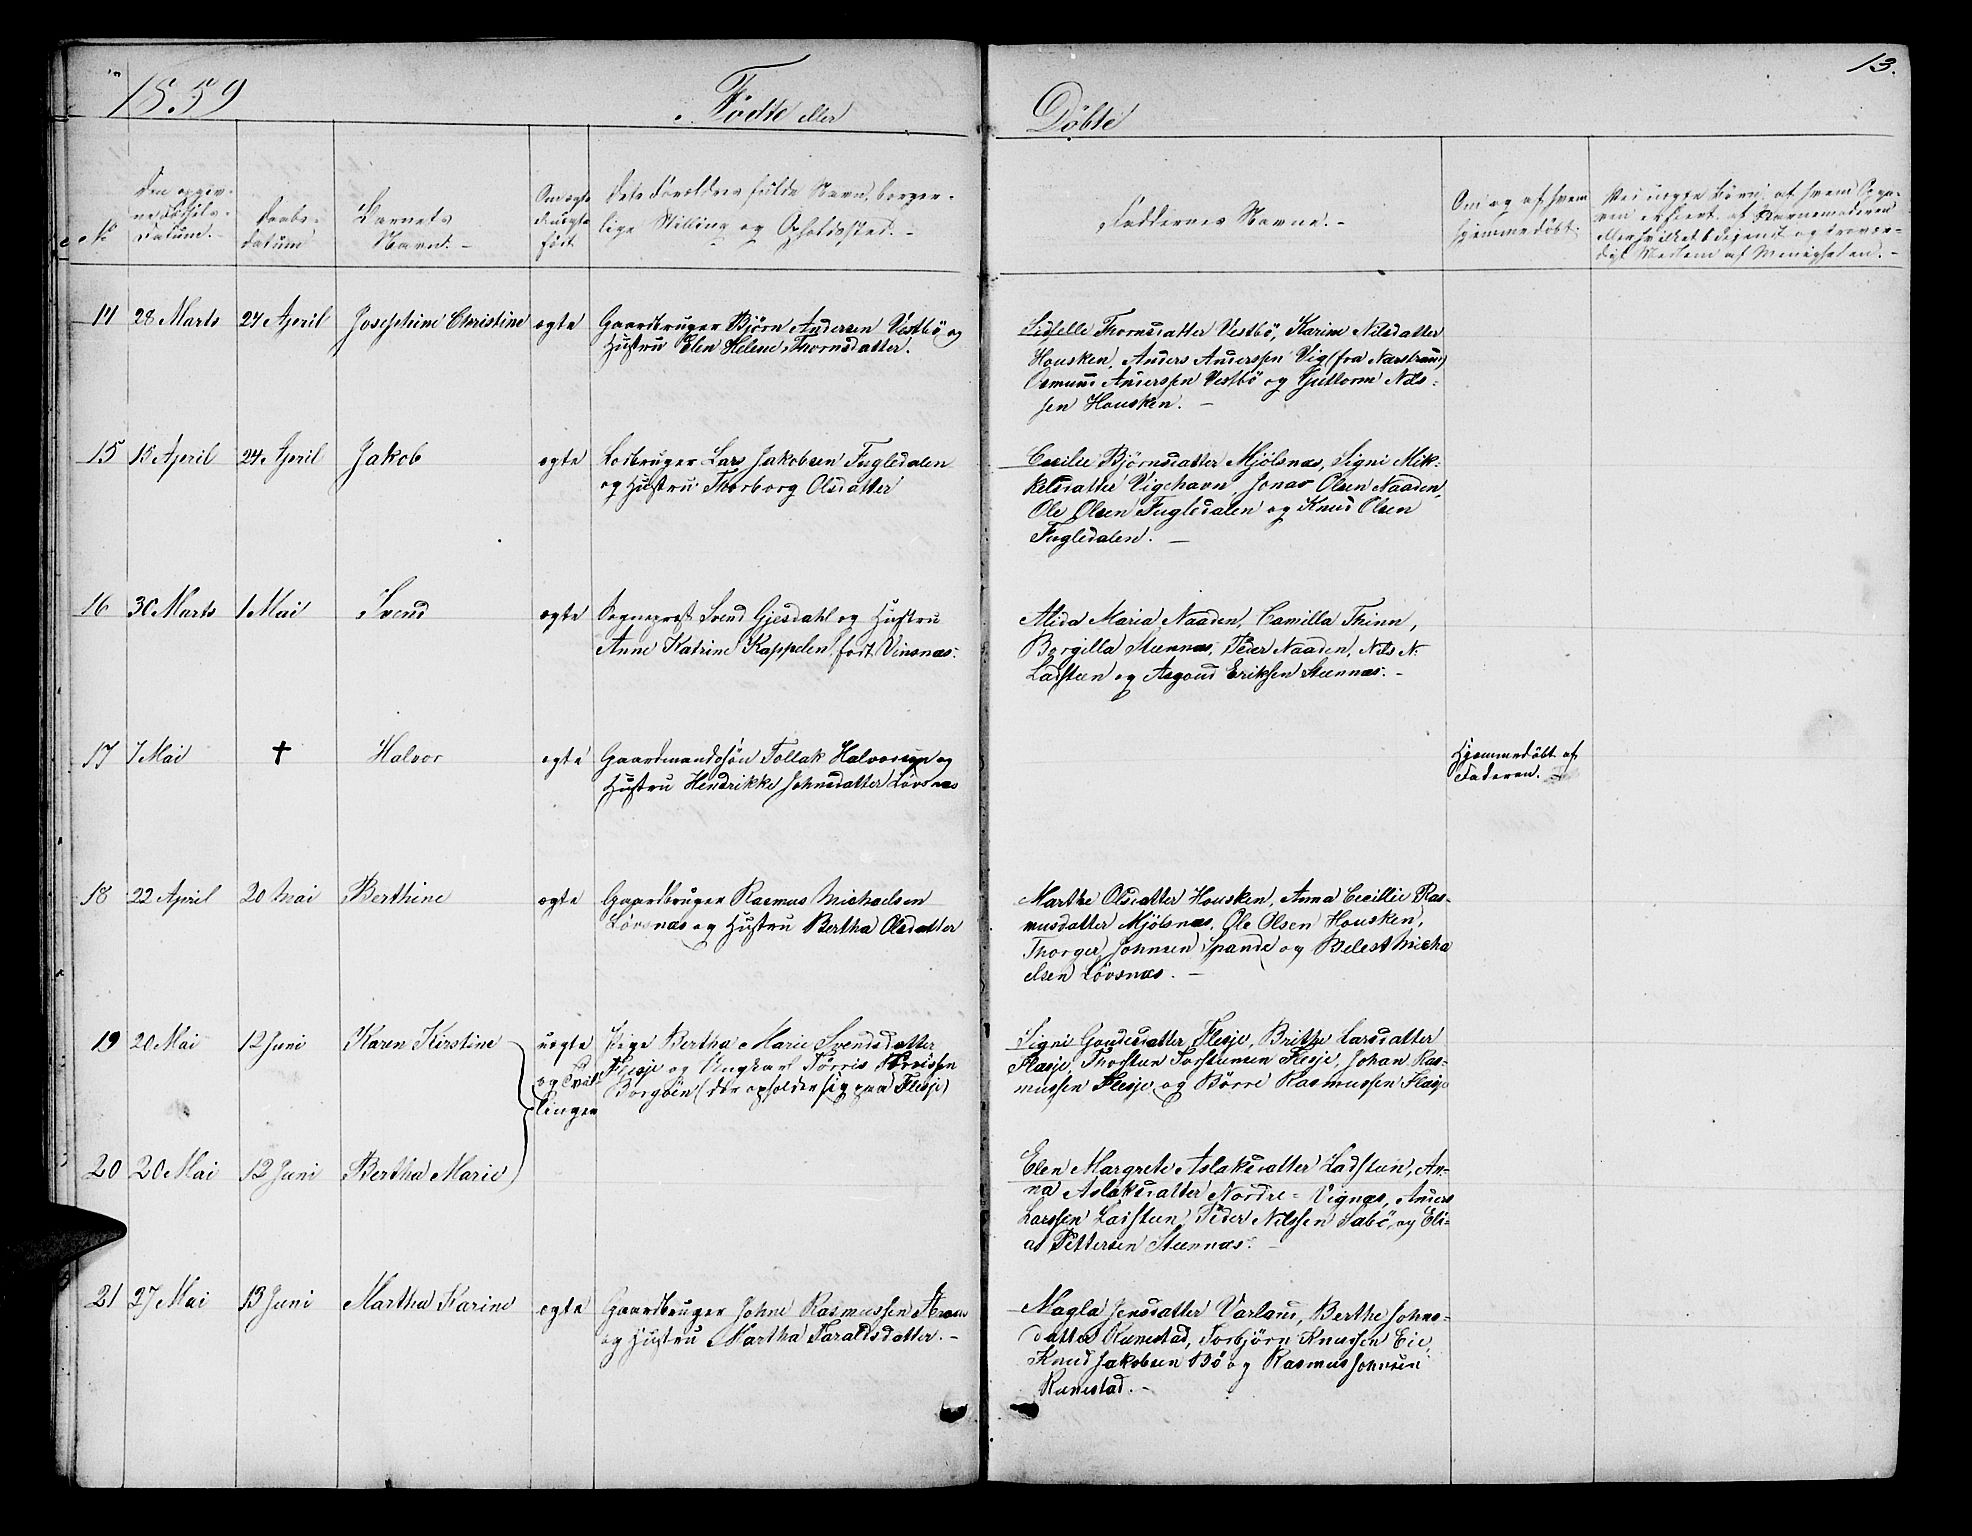 13.
1859
Fødte eller
Døbte
No
Den opgiv-
ne Fødsels-
datum.
Daabs-
datum
Barnets
Navn. -
Om ægte
el. uægte
født
Dets Forældres fulde Navn, borger-
lige Stilling og Opholdssted. -
Faddernes Navne. -
Om og af hvem
hjemmedøbt.
Ved uægte Børn, af hvem Opga-
ven erfert, at Barnemoderen
eller hvilket bekjendt og trovær-
digt Medlem af Menigheden. -
14 28 Marts 24 April Josephine Christine ægte
Gaardbruger Bjørn Andersen Vestbö og
Hustru Elen Helene Thornsdatter.
Sidselle Thornsdatter Vestbö, Karine Nilsdatter
Housken, Anders Anderssen Vig (fra Narstrand)
Osmund Anderssen Vestbö og Guttorm Nils-
sen Housken. -
15 15 April 24 April Jakob ægte
Lodbruger Lars Jakobsen Fugledalen
og Hustru Thorborg Olsdatter
Cecilie Bjørnsdatter Mjölsnæs, Signi Mik-
kelsdatter Vigehavn, Jonas Olsen Naaden,
Ole Olsen Fugledalen og Knud Olsen
Fugledalen. -
16 30 Marts 1 Mai Svend ægte
Sognepræst Svend Gjesdahl og Hustru
Anne Katrine Kappelen, født Vinsnæs.
Alida Maria Naaden, Camilla Thinn,
Borgilla Steennæs, Peder Naaden, Nils N.
Ladsteen og Asgoud Eriksen Steennæs. -
17 7 Mai † Halvor ægte
Gaardmandssøn Tollak Halvorsen og
Hustru Hendrikke Johnsdatter Lövsnæs
Hjemmedøbt af
Faderen.
18 22 April 20 Mai Berthine ægte
Gaardbruger Rasmus Michaelsen
Lövsnæs og Hustru Bertha Olsdatter
Marthe Olsdatter Housken, Anna Cecillie Ras-
musdatter Mjölsnæs, Ole Olsen Housken,
Thorger Johnsen Spande og Belest Micha
elsen Lövsnæs. -
19 20 Mai 12 Juni Karen Kirstine
uægte
og Tvil-
linger
Pige Bertha Marie Svendsdatter
Flesje og Ungkarl Tørris Tørrisen
Borgöen (der opholder sig paa Flesje)
Signi Goudesdatter Flesje, Brithe Larsdatter
Flesje, Thorsten Torstensen Flesje, Johan Ras-
mussen Flesje og Börre Rasmussen Flesje
20 20 Mai 12 Juni Bertha Marie
Elen Margrete Aslaksdatter Ladsteen, An-
na Aslaksdatter Nordre-Vignæs, Anders
Larssen Ladsteen, Peder Nilssen Sabö, og Eli-
as Pettersen Steennæs. -
21 27 Mai 13 Juni Martha Karine ægte
Gaardbruger Johne Rasmussen
og Hustru Martha Taraldsdatter. -
Magla Jensdatter Varland, Berthe Johns-
datter Runestad, Torbjörn Knussen Eie,
Knud Jakobsen Bö og Rasmus Johnsen
Runestad. -